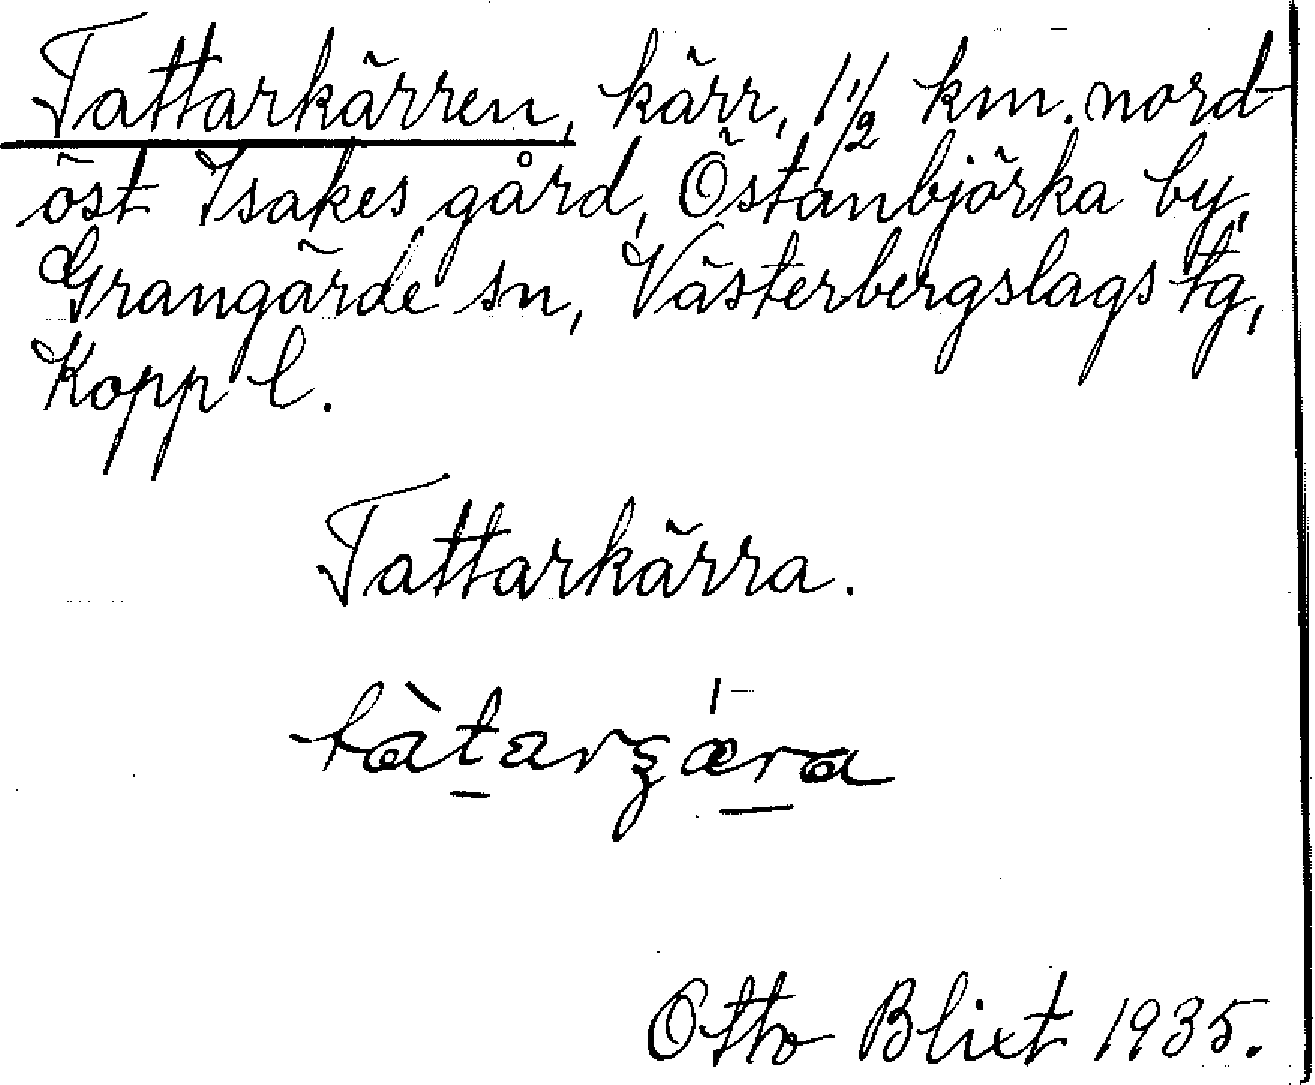 Tattarkärren, kärr, 1 1/2 km. nord-
öst Isakes gård, Östanbjörka by,
Grangärde sn, Västerbergslags tg,
Kopp l.
Tattarkärra.
Otto Blixt 1935.